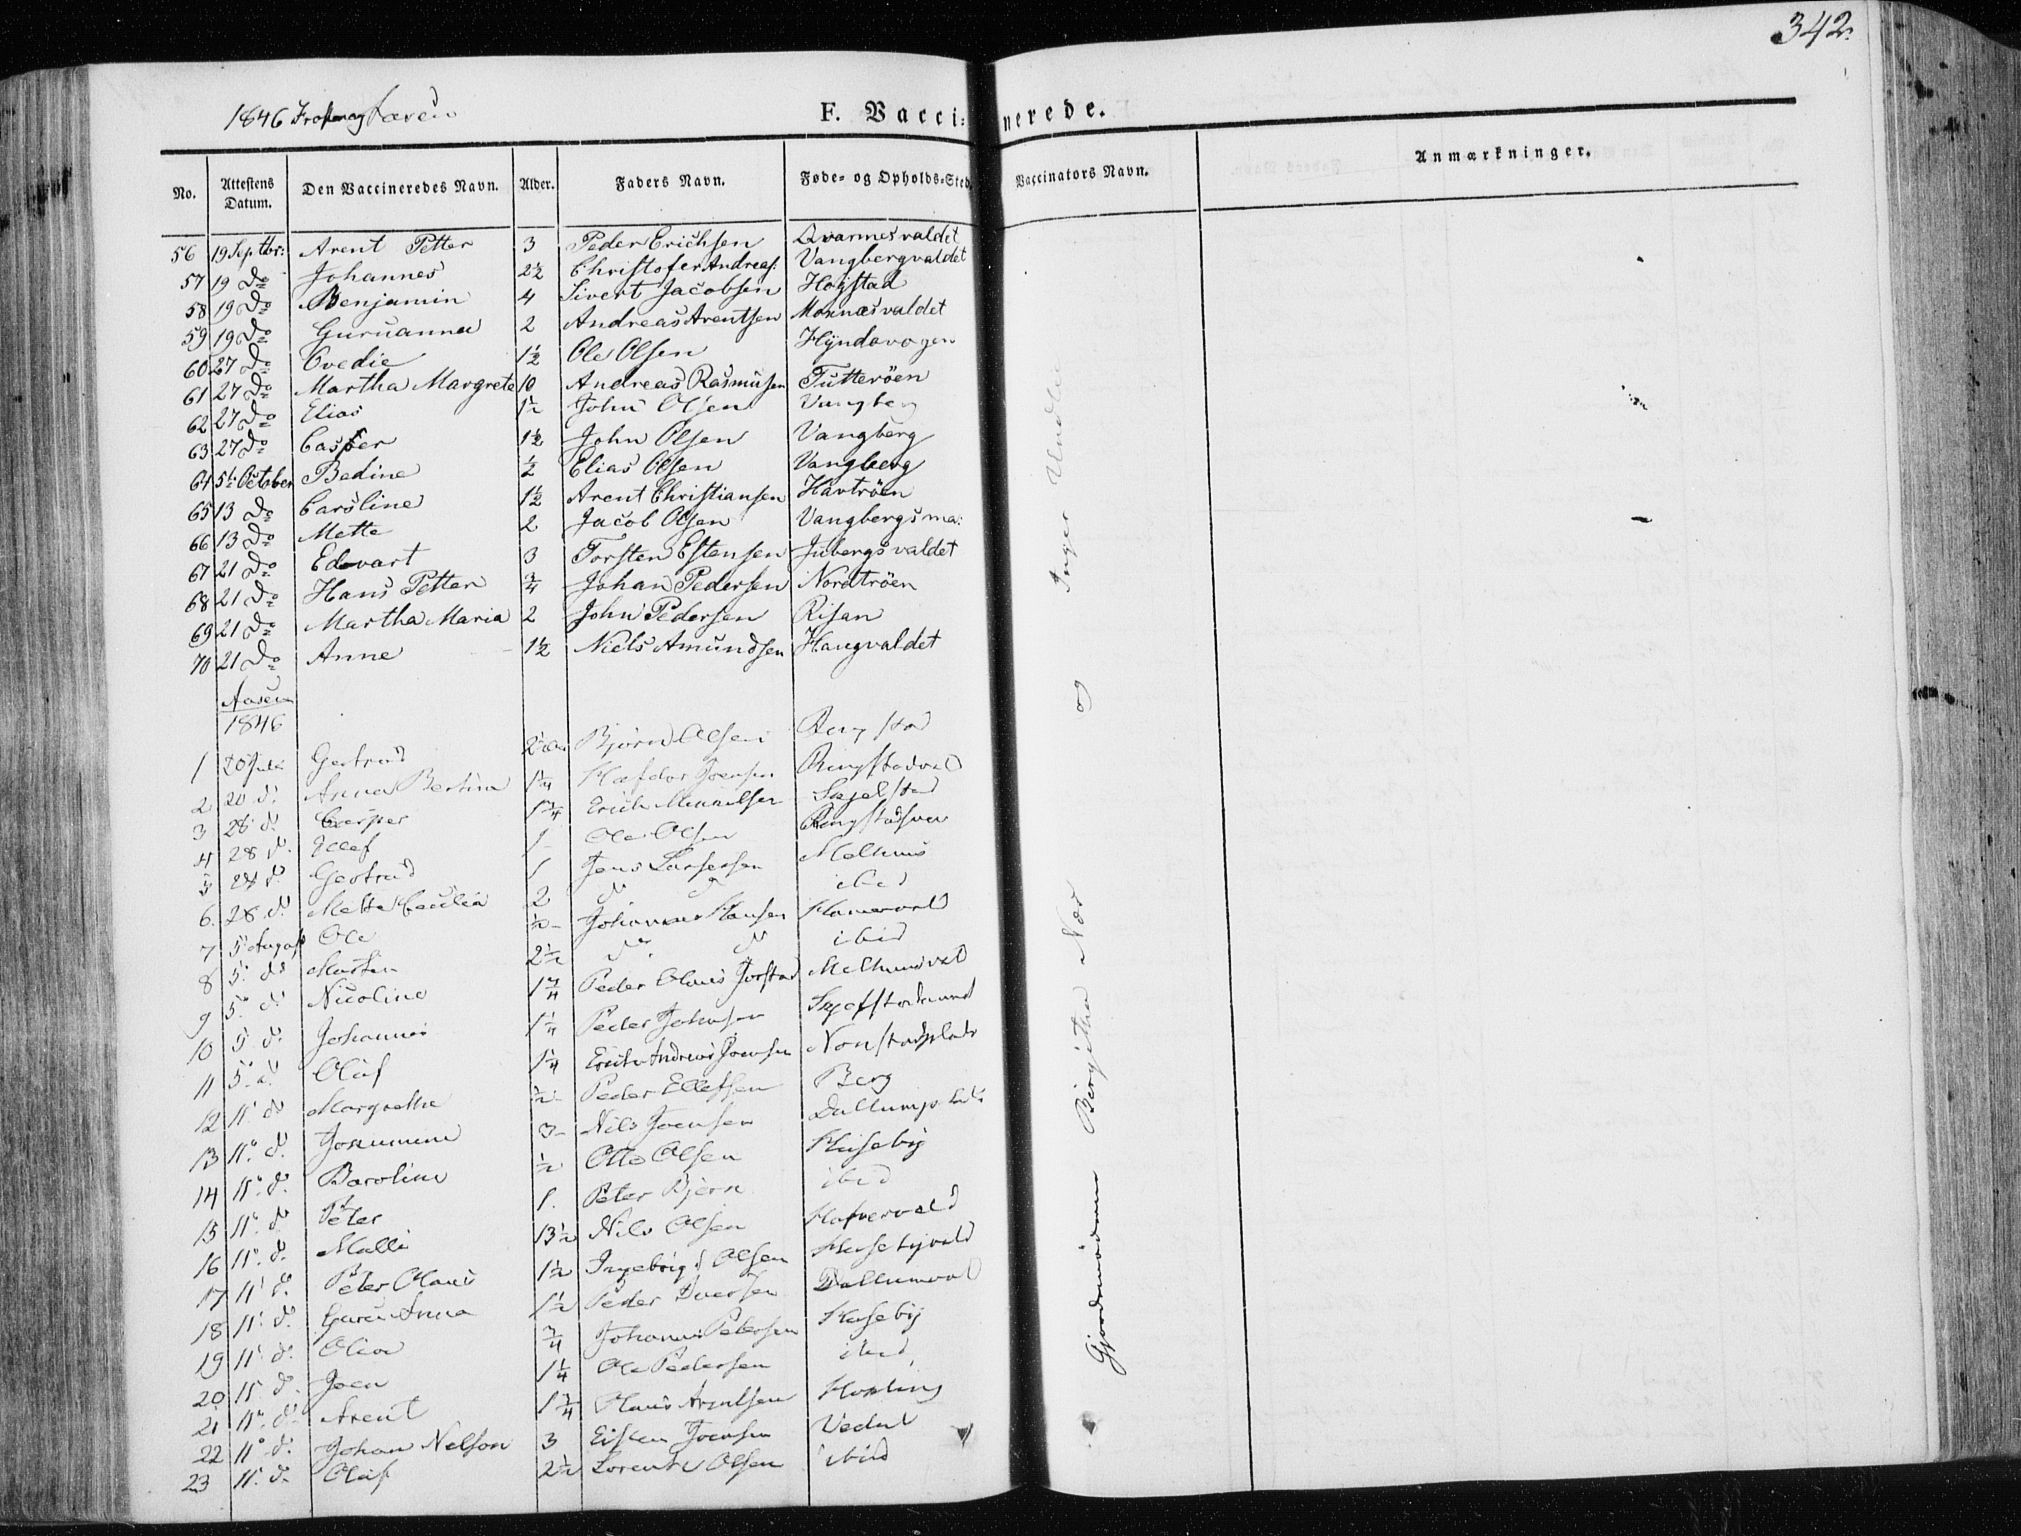 342.
1846 Frosten og Aasen
F. Vaccinerede.
No. Attestens Datum. Den Vaccineredes Navn. Alder. Faders Navn. Føde- og Opholds-Sted. Vaccinators Navn. Anmærkninger.
56 19 Septbr: Arent Petter 3 Peder Erichsen Qvarmesvaldet
57 19 Do Johannes 2½ Christofer Andreas: Vangbergvaldet
58 19 Do Benjamin 4 Sivert Jacobsen Hojstad
59 19 Do Guruanna 2 Andreas Arentsen Monnæsvaldet
60 27 Do Ovedie 1½ Ole Olsen Hyndavogen
61 27 Do Martha Margrete 10 Andreas Rasmusen Tutterøen
62 27 Do Elias 1½ John Olsen Vangberg
63 27 Do Casper 1½ John Olsen Vangberg
64 5te October Bedine ½ Elias Olsen Vangberg
65 13 Do Caroline 1½ Arent Christiansen Havtrøen
66 13 Do Mette 2 Jacob Olsen Vangbergsma:
67 21 Do Edevart 3 Torsten Estensen Jubergsvaldet
68 21 Do Hans Petter ¾ Johan Pedersen Nordtrøen
69 21 Do Martha Maria 2 John Pedersen Risan
70 21 Do Anne 1½ Niels Amundsen Haugvaldet
Aasen
1846
1 20 Juli Gertrud Bjørn Olsen Ringstad
2 20 d. Anna Bertina 1¼ Hafdor Joensen Ringstadvald
3 28 d. Casper 1¾ Erich Mikkelsen Skjelstad
4 28 d. Ellef 1 Ole Olsen
5 28 d. Gertrud 1 Jens Larsen Melhuus
6. 28 d. Mette Cecilia 2 do do ibid
7 5 August Ole ½ Johannes Hansen
8 5. do Martin 2½ do do ibid
9 5. d. Nicoline 1¾ Peder Olaus Jørstad Melhuusvald
10 5 d. Johannes 1¼ Peder Johnsen
11 5. d. Oluf 1¼ Erich Andreas Joensen Nonstadplads
12 11 do Margrethe ½ Peder Ellefsen Berg
13 11. d. 3 Nils Joensen
14 11. d. Baroline ½ Otto Olsen Huseby
15 11. d. Peter 1. Peter Bjørn ibid
16 11. d. Malli 13½ Nils Olsen
17 11 d. Peter Olaus 1½ Ingebrigt Olsen Husebyvald
18 11. d. Guru Anna 1½ Peder Iversen Dallumvald
19 11. d. Oline ¾ Johannes Petersen Huseby
20 15. d. Joen 1¼ Ole Pedersen ibid
21 11. d. Arent 1¾ Hans Arentsen
22 11. d. Johan Nelson 3 Eisten Joensen Vedul
23 11. d. Oluf 2½ Lorents Olsen ibid
Gjordemødrene Bergitha Næs og Inger Undlie